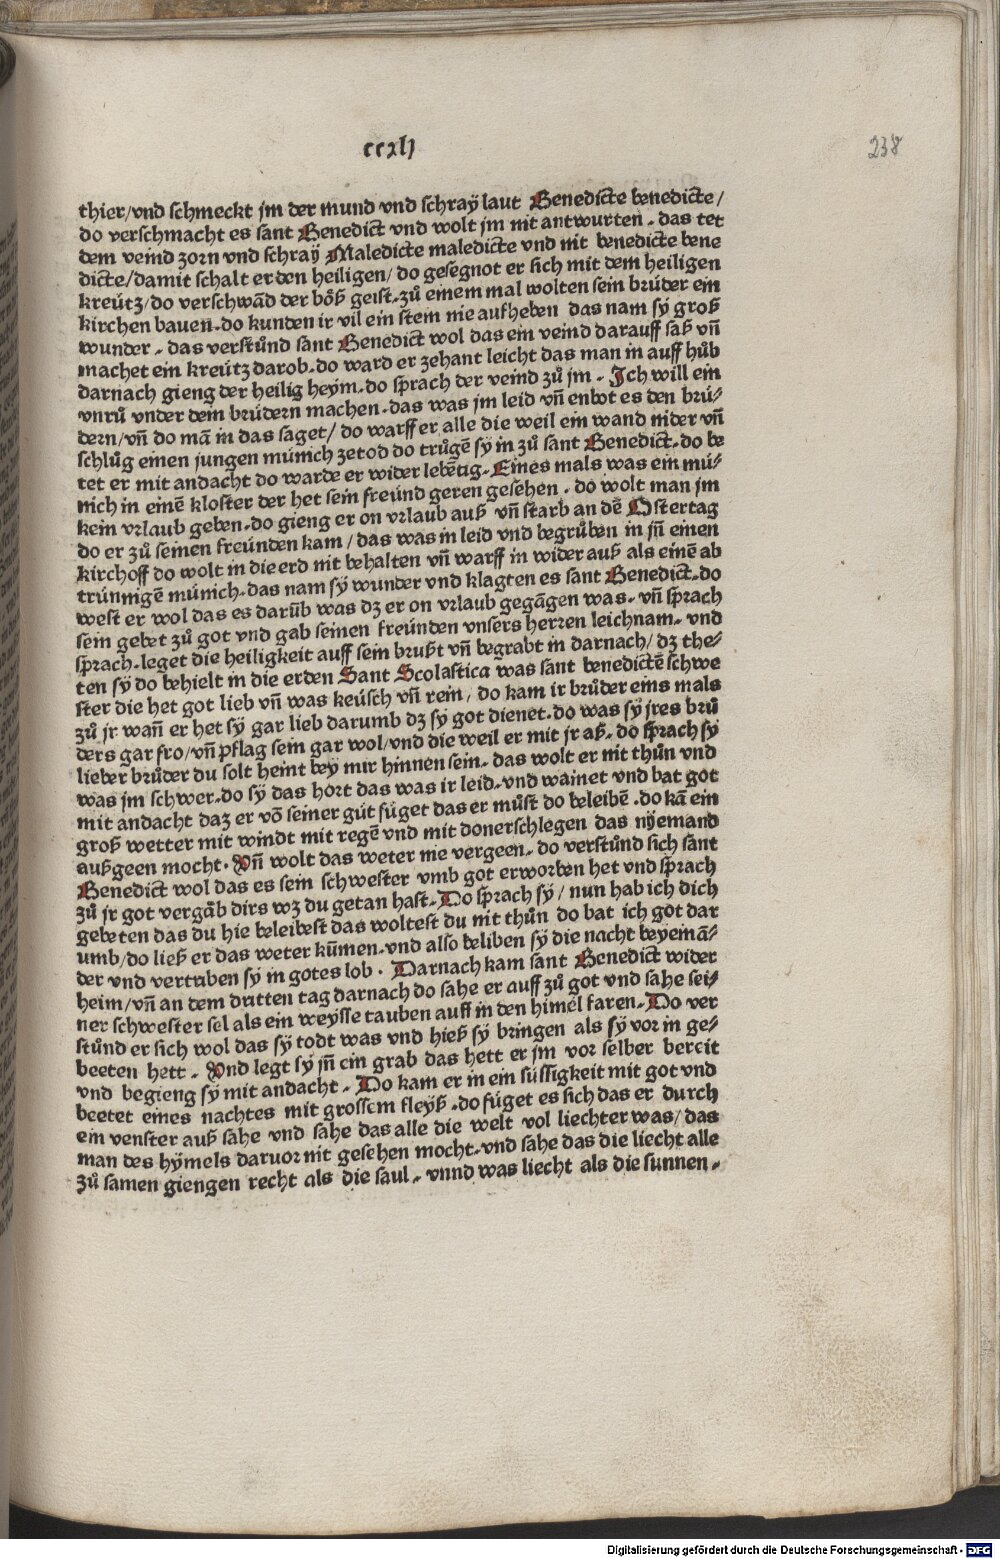 ccxlj
238
thier/vnd schmeckt jm der mund vnd schraÿ laut Benedicte benedicte/
do verschmacht es sant Benedict vnd wolt jm nit antwurten. das tet
dem veind zorn vnd schraÿ Maledicte maledicte vnd nit benedicte bene
dicte/damit schalt er den heiligen/ do gesegnot er sich mit dem heiligen
kreütz/do verschwād der böß geist. zů einem mal wolten sein brüder ein
kirchen bauen. do kunden ir vil ein stein nie aufheben das nam sÿ groß
wunder. das verstůnd sant Benedict wol das ein veind darauff saß vn̄
machet ein kreütz darob. do ward er zehant leicht das man in auff hůb
darnach gieng der heilig heym. do sprach der veind zů jm. Ich will ein
vnrů vnder dein brüdern machen. das was jm leid vn̄ enbot es den brü⸗
dern/vn̄ do mā in das saget/ do warff er alle die weil ein wand nider vn̄
schlůg einen jungen münich zetod do trůgē sÿ in zů sant Benedict. do be
tet er mit andacht do warde er wider lebētig. Eines mals was ein mü⸗
nich in einē kloster der het sein freünd geren gesehen. do wolt man jm
kein vrlaub geben. do gieng er on vrlaub auß vn̄ starb an dē Ostertag
do er zů seinen freünden kam/ das was in leid vnd begrůben in jn̄ einen
kirchoff do wolt in die erd nit behalten vn̄ warff in wider auß als einē ab
trünnigē münich. das nam sÿ wunder vnd klagten es sant Benedict. do
west er wol das es darūb was dz er on vrlaub gegāgen was. vn̄ sprach
sein gebet zů got vnd gab seinen freünden vnsers herren leichnam. vnd
sprach. leget die heiligkeit auff sein brußt vn̄ begrabt in darnach/ dz the⸗
ten sÿ do behielt in die erden Sant Scolastica was sant benedictē schwe
ster die het got lieb vn̄ was keüsch vn̄ rein/ do kam ir brůder eins mals
zů jr wan̄ er het sÿ gar lieb darumb dz sÿ got dienet. do was sÿ jres brů
ders gar fro/vn̄ pflag sein gar wol/vnd die weil er mit jr aß. do sprach sÿ
lieber brůder du solt heint bey mir hinnen sein. das wolt er nit thůn vnd
was jm schwer. do sÿ das hort das was ir leid. vnd wainet vnd bat got
mit andacht daz er vō seiner güt füget das er můst do beleibē. do kā ein
groß wetter mit windt mit regē vnd mit donerschlegen das nÿemand
außgeen mocht. Vn̄ wolt das weter nie vergeen. do verstůnd sich sant
Benedict wol das es sein schwester vmb got erworben het vnd sprach
zů jr got vergäb dirs wz du getan hast. Do sprach sÿ/ nun hab ich dich
gebeten das du hie beleibest das woltest du nit thůn do bat ich got dar
umb/do ließ er das weter kūmen. vnd also beliben sÿ die nacht beyeinā⸗
der vnd vertriben sÿ in gotes lob. Darnach kam sant Benedict wider
heim/vn̄ an dem dritten tag darnach do sahe er auff zů got vnd sahe sei⸗
ner schwester sel als ein weysse tauben auff in den himel faren. Do ver
stůnd er sich wol das sÿ todt was vnd hieß sÿ bringen als sÿ vor in ge⸗
beeten hett. Vnd legt sÿ jn̄ ein grab das hett er jm vor selber bereit
vnd begieng sÿ mit andacht. Do kam er in ein süssigkeit mit got vnd
beetet eines nachtes mit grossem fleyß. do füget es sich das er durch
ein venster auß sahe vnd sahe das alle die welt vol liechter was/ das
man des hÿmels daruor nit gesehen mocht. vnd sahe das die liecht alle
zů samen giengen recht als die saul. vnnd was liecht als die sunnen.
Digitalisierung gefördert durch die Deutsche Forschungsgemeinschaft - DFG